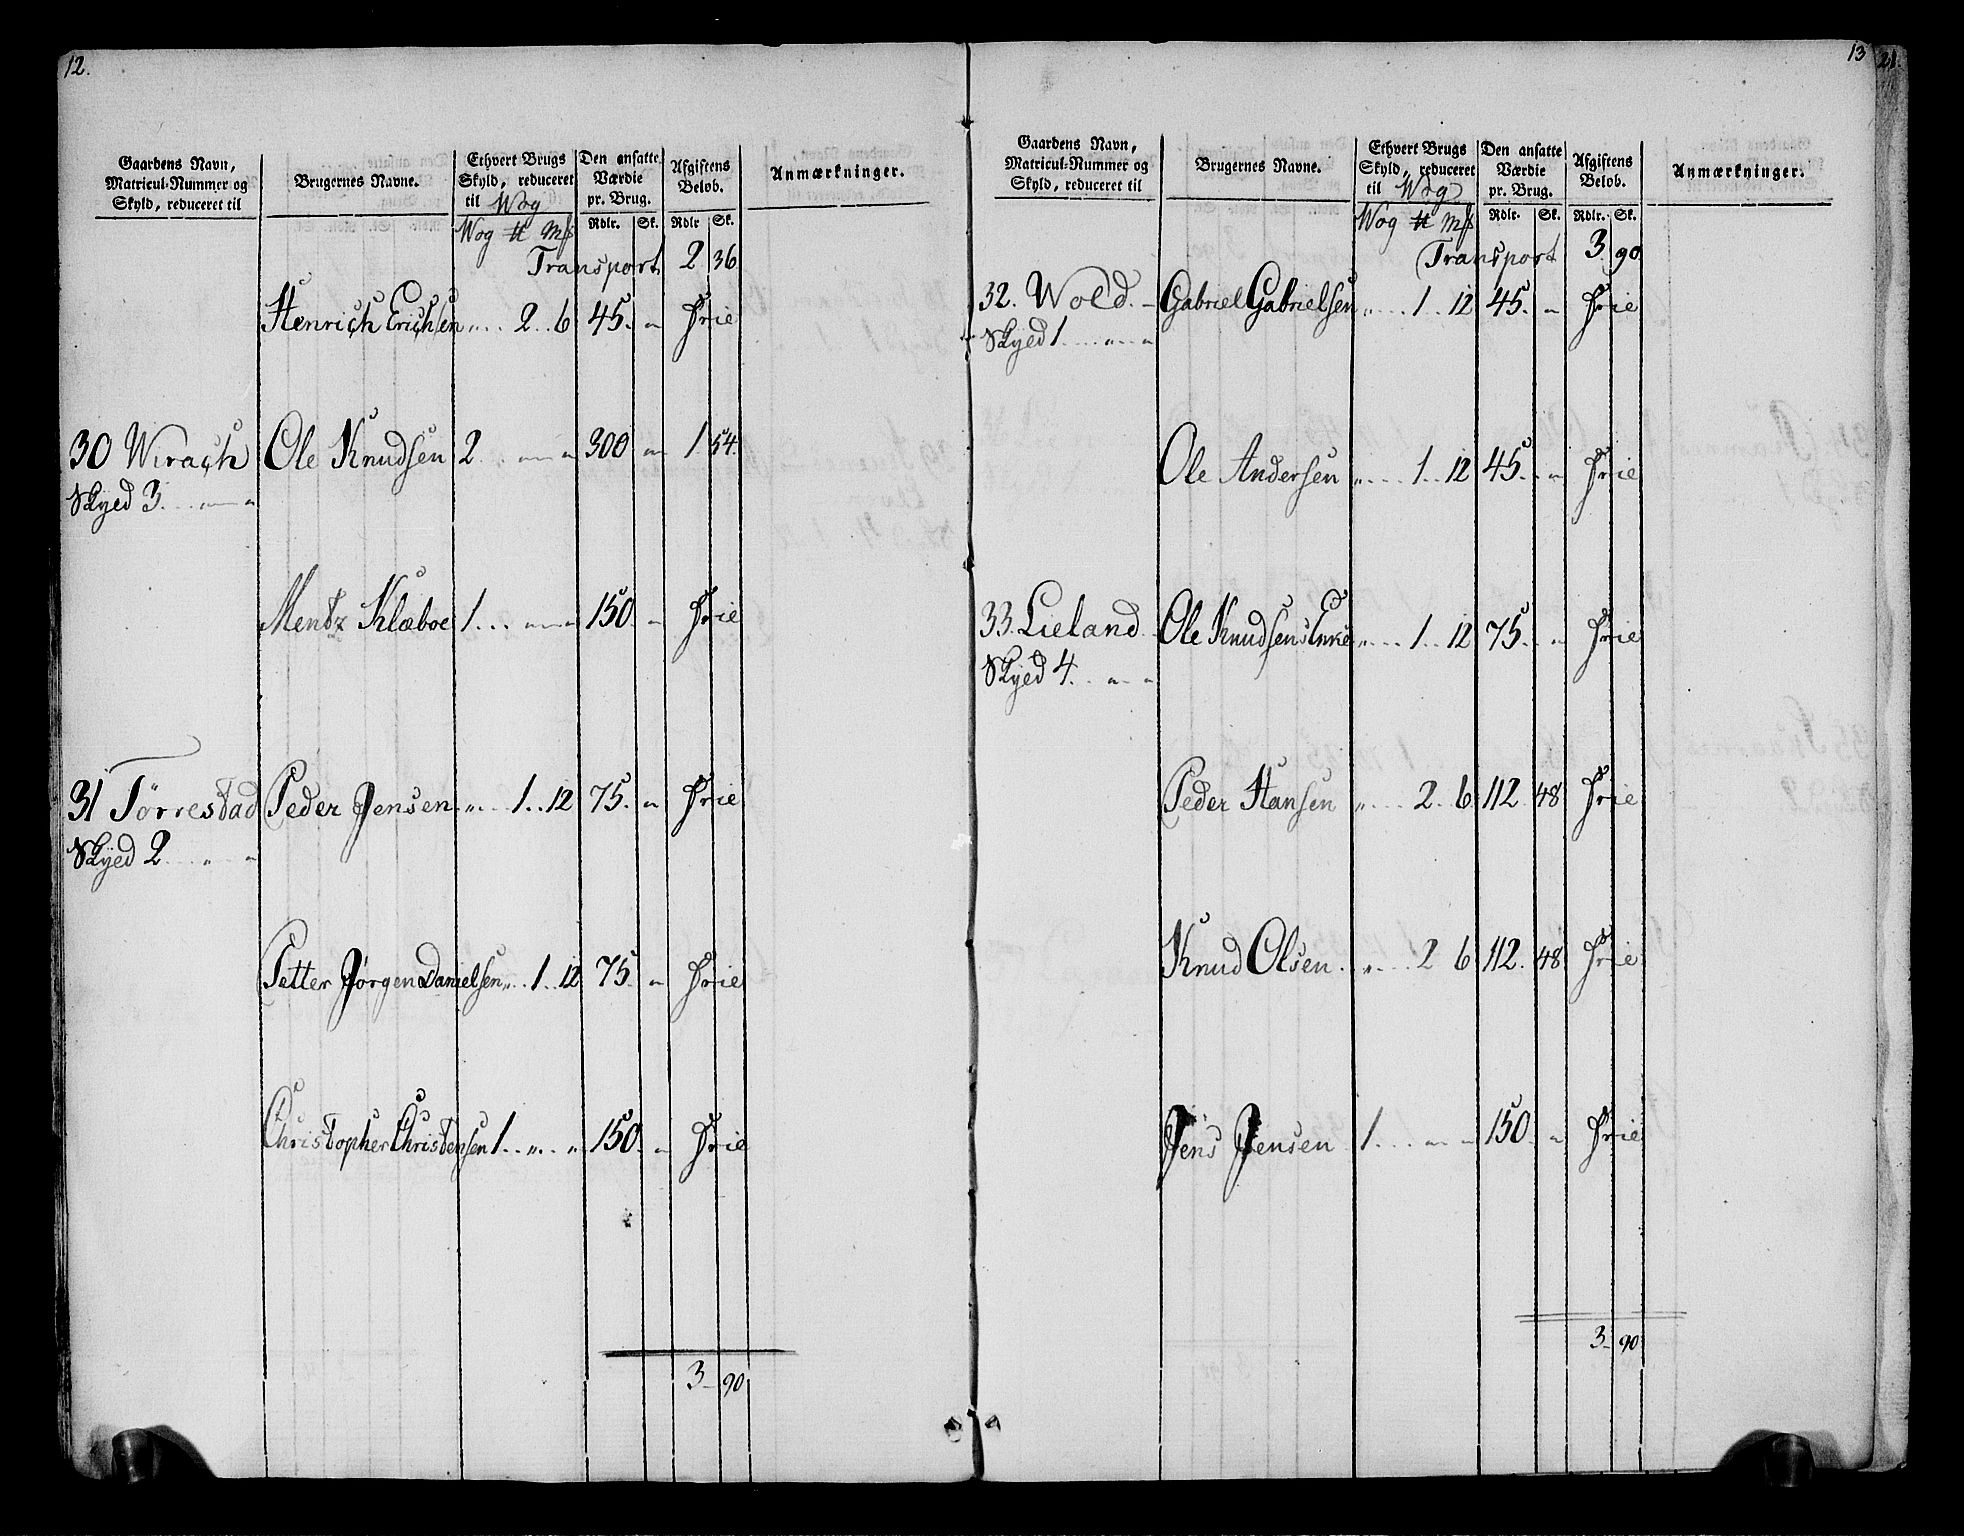 12.
Gaardens Navn, Matricul-Nummer og Skyld, reduceret til
Brugernes Navne.
Ethvert Brugs Skyld, reduceret til Wog
Den ansatte Værdie pr. Brug.
Afgiftens Beløb.
Anmærkninger.
Wog ℔ Mk Rdlr. Sk. Rdlr Sk.
Transport 2 36
Henrich Erichsen „ 2 6 45. „ Frie
30 Wirach Ole Knudsen 2 „ „ 300 „ 1 54.
Skyed 3. „ „
Mentz Klæboe 1 „ „ 150. „ Frie
31 Törrestad Peder Jensen „ 1 12 75. „ Frie
Skyed 2 „ „
Petter Jørgen Danielsen „ 1 12 75. „ Frie
Christopher Christensen 1 „ „ 150. „ Frie
3 90
13
21.
Gaardens Navn, Matricul-Nummer og Skyld, reduceret til
Brugernes Navne.
Ethvert Brugs Skyld, reduceret til Wog
Den ansatte Værdie pr. Brug.
Afgiftens Beløb.
Anmærkninger.
Wog ℔ Mk Rdlr. Sk. Rdlr. Sk.
Transport 3 90
32. Wold. Gabriel Gabrielsen „ 1 12 45. „ Frie
Skyed 1 „ „
Ole Andersen „ 1 12 45. „ Frie
33. Lieland Ole Knudsens Enke „ 1 12 75. „ Frie
Skyed 4. „ „
Peder Hansen „ 2 6 112 48 Frie
Knud Olsen „ 2 6 112. 48 Frie
Jens Jensen 1 „ „ 150. „ Frie
3 90